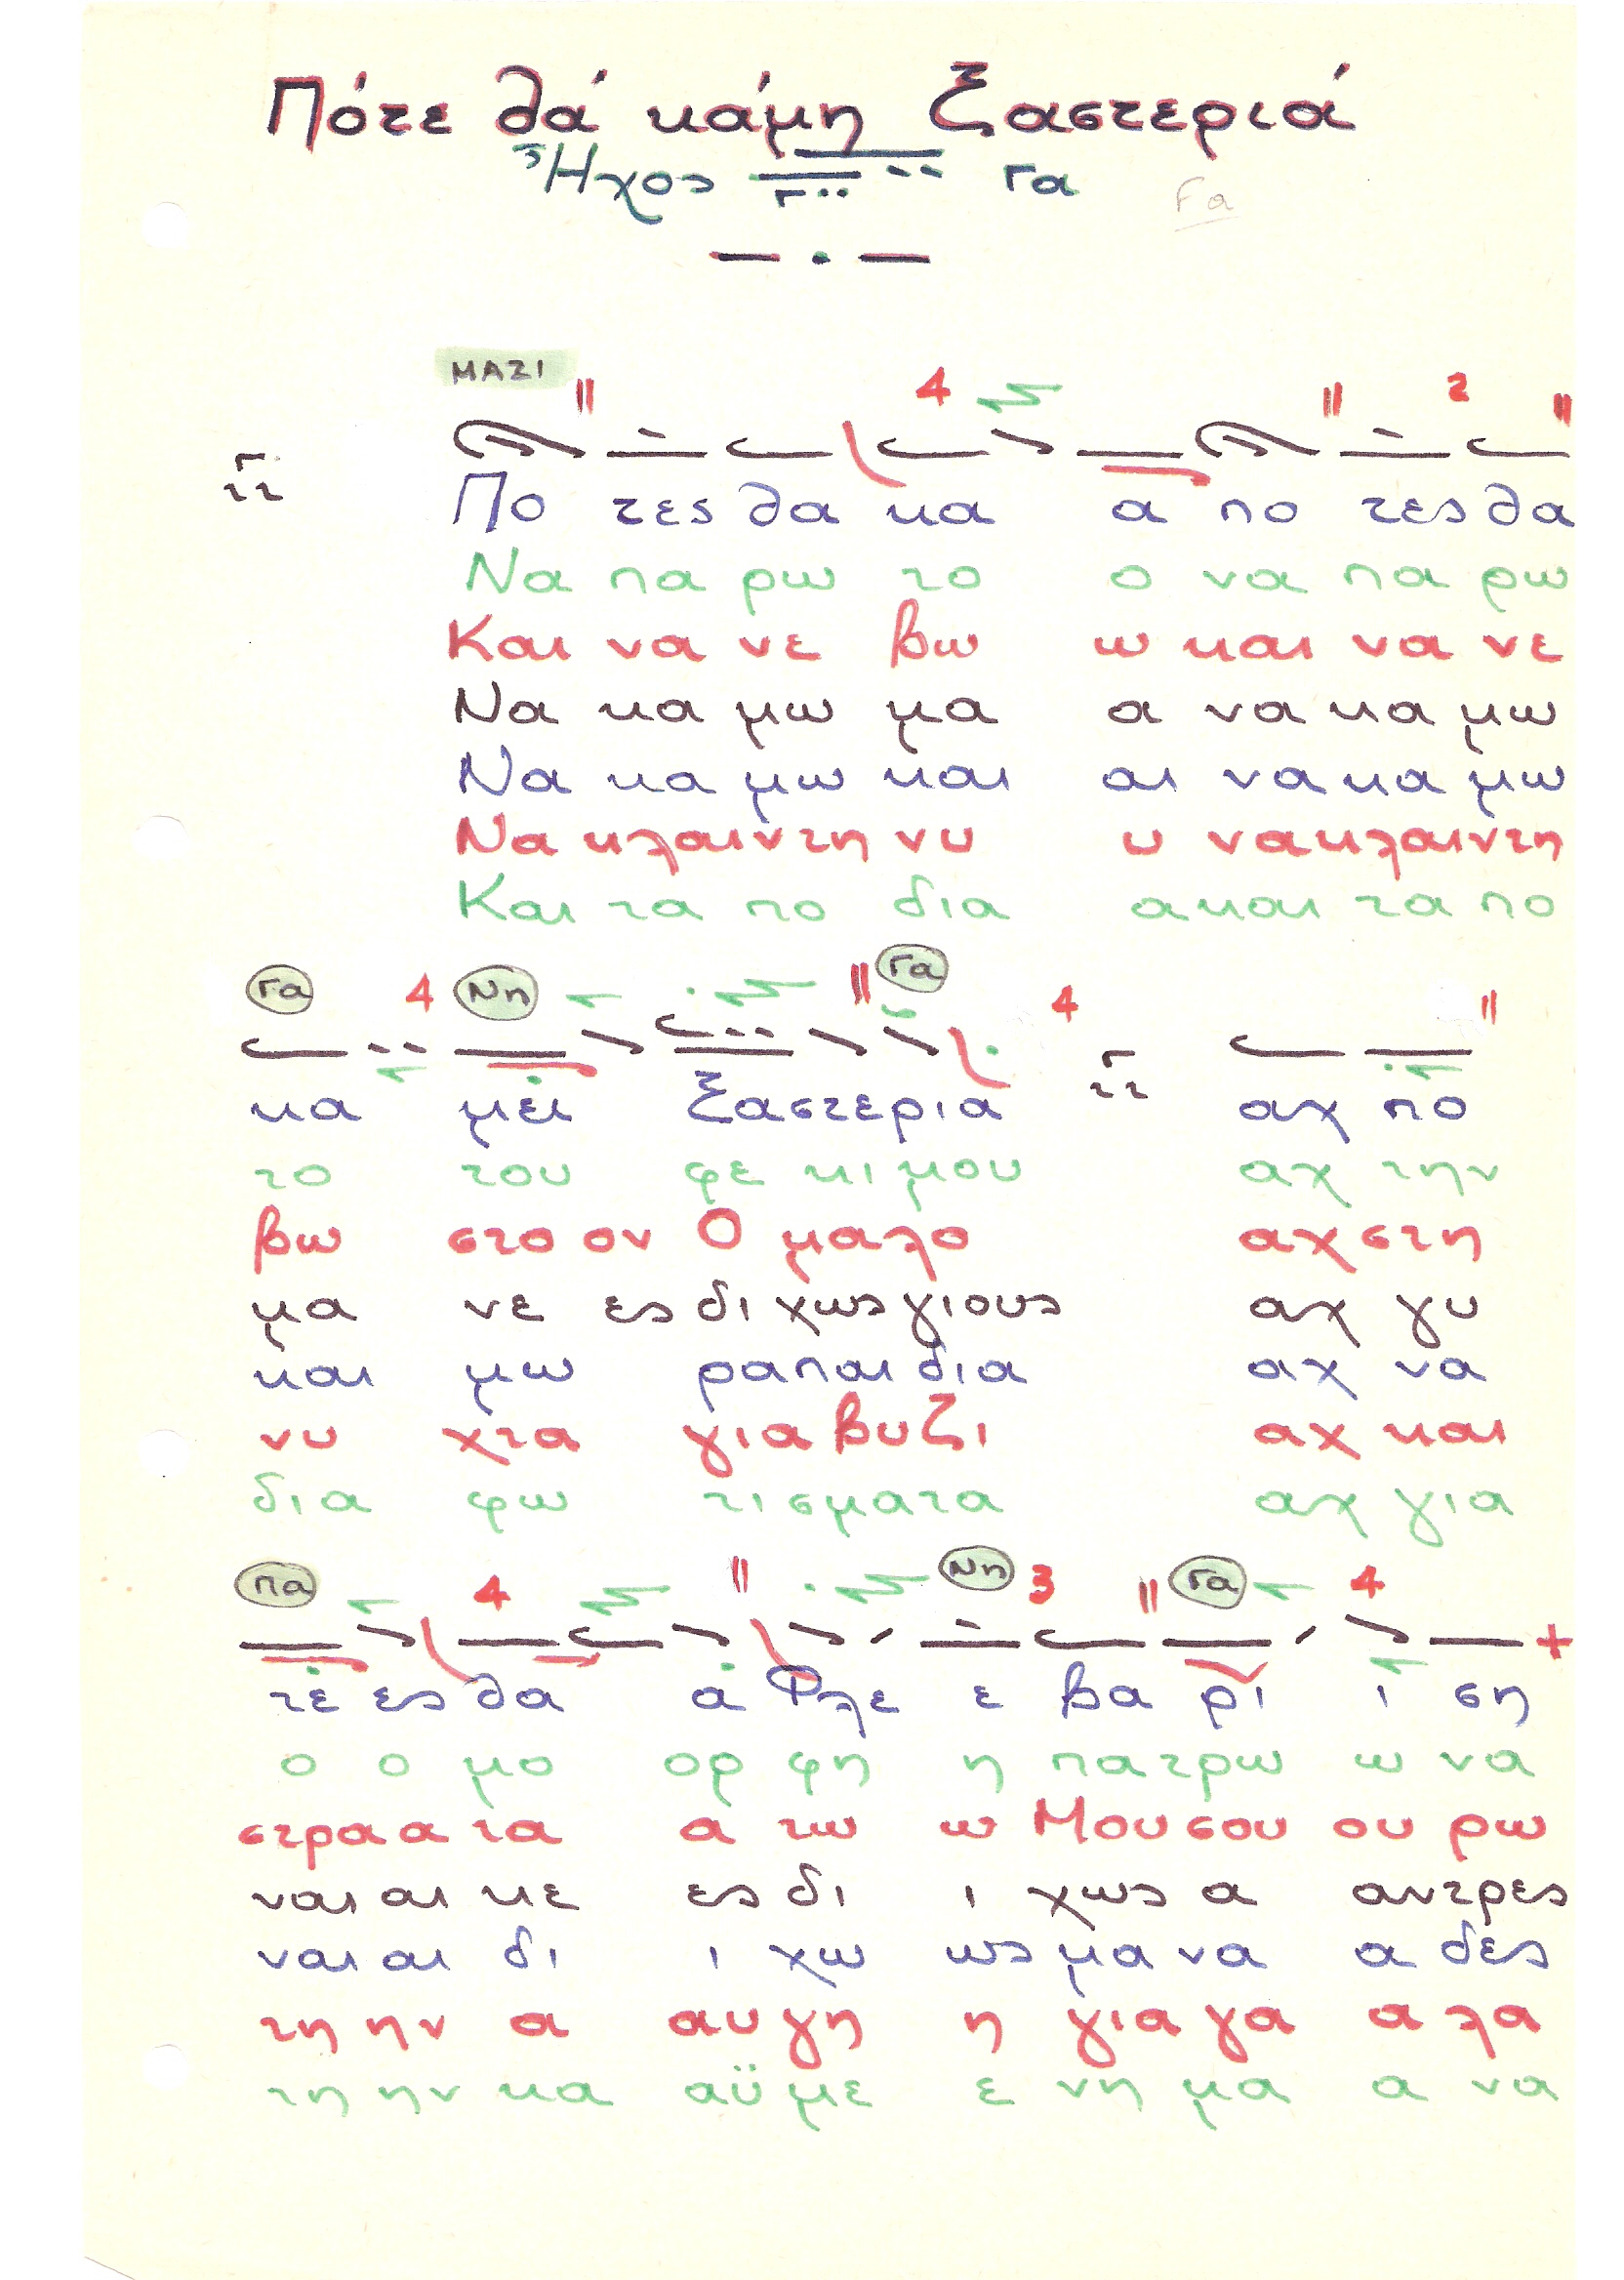 Πότε θά κάμη ξαστεριά
Ἦχος Γα
Γα
ΜΑΖΙ
4 2
Πο τες θα κα α πο τες θα
Να πα ρω το ο να πα ρω
Και να νε βω ω και να νε
Να κα μω μα α να κα μω
Να κα μω και αι να κα μω
Να κλαιν τη νυ υ να κλαιν τη
Και τα πο δια α και τα πο
Γα 4 Νη Γα 4
κα μει ξαστερια αχ πο
το του φε κι μου αχ την
βω στο ον Ο μαλο αχ στη
μα νε ες δι χως γιους αχ γυ
και μω ρα παι δια αχ να
νυ χτα για βυζι αχ και
δια φω τισματα αχ για
Πα 4 Νη 3 Γα 4
τε ες θα α Φλε ε βα ρι ι ση
ο ο μο ορ φη η πα τρω ω να
στρα α τα α τω ω Μου σου ου ρω
ναι αι κε ες δι ι χως α αντρες
ναι αι δι ι χω ως μα να α δες
τη ην α αυ γη η για γα α λα
τη ην κα αϋ με ε νη μα α να